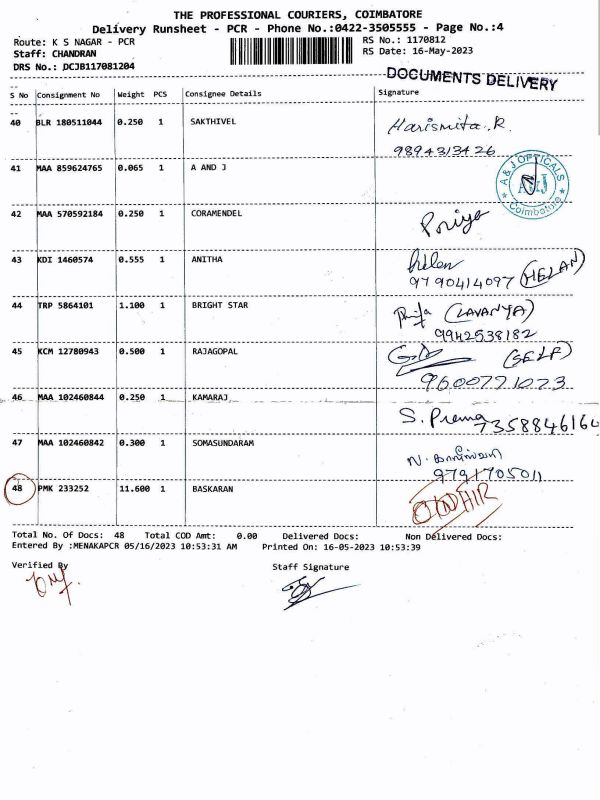 THE PROFESSIONAL COURIERS, COIMBATORE
Delivery Runsheet - PCR - Phone No.:0422-3505555 - Page No.:4
Route: K S NAGAR - PCR RS No.: 1170812
Staff: CHANDRAN RS Date: 16-May-2023
DRS No.: DCJB117081204
DOCUMENTS DELIVERY
S No Consignment No Weight PCS Consignee Details Signature
40 BLR 180511044 0.250 1 SAKTHIVEL Harismita.R
9894313426
41 MAA 859624765 0.065 1 A AND J A & J OPTICALS A&J Coimbatore
42 MAA 570592184 0.250 1 CORAMENDEL Priya
43 KDI 1460574 0.555 1 ANITHA helen
9790414097 (HELAN)
44 TRP 5864101 1.100 1 BRIGHT STAR (LAVANYA)
9942538182
45 KCM 12780943 0.500 1 RAJAGOPAL (SELF)
9600771073
46 MAA 102460844 0.250 1 KAMARAJ S. Prema 7358846164
47 MAA 102460842 0.300 1 SOMASUNDARAM
9791705011
48 PMK 233252 11.600 1 BASKARAN
Total No. Of Docs: 48 Total COD Amt: 0.00 Delivered Docs: Non Delivered Docs:
Entered By :MENAKAPCR 05/16/2023 10:53:31 AM Printed On: 16-05-2023 10:53:39
Verified By Staff Signature